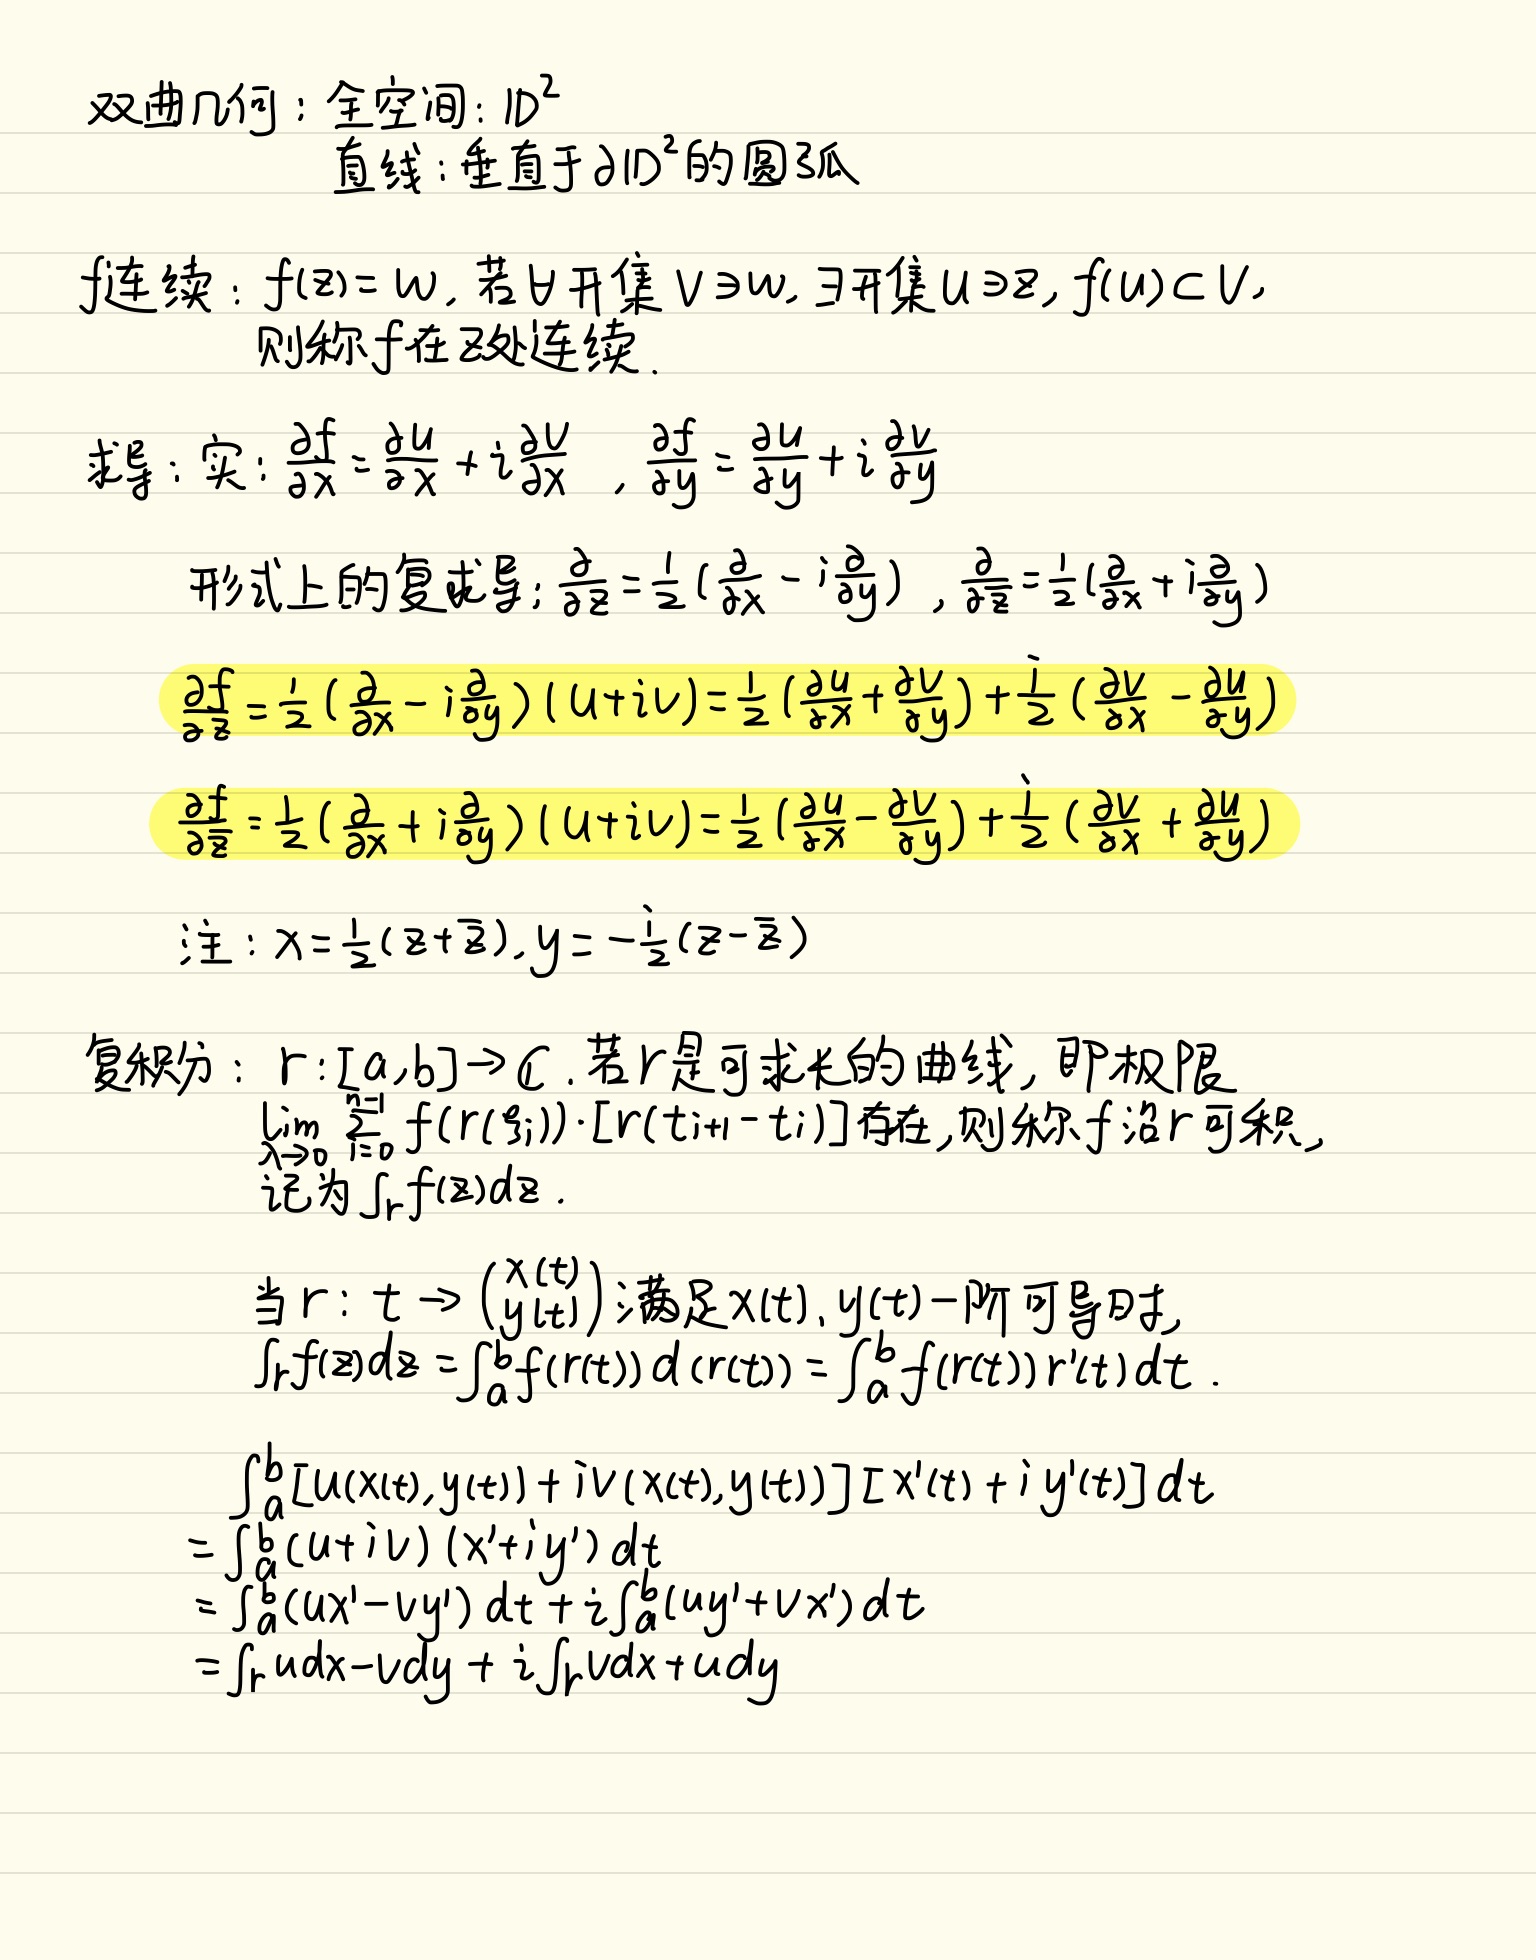 双曲几何：全空间：𝔻²
直线：垂直于∂𝔻²的圆弧
f连续：f(z)=w，若∀开集V∋w，∃开集U∋z，f(U)⊂V，
则称f在z处连续．
求导：实：∂f/∂x=∂u/∂x+i∂v/∂x ，∂f/∂y=∂u/∂y+i∂v/∂y
形式上的复求导：∂/∂z=1/2(∂/∂x−i∂/∂y) ，∂/∂z̅=1/2(∂/∂x+i∂/∂y)
∂f/∂z=1/2(∂/∂x−i∂/∂y)(u+iv)=1/2(∂u/∂x+∂v/∂y)+i/2(∂v/∂x−∂u/∂y)
∂f/∂z̅=1/2(∂/∂x+i∂/∂y)(u+iv)=1/2(∂u/∂x−∂v/∂y)+i/2(∂v/∂x+∂u/∂y)
注：x=1/2(z+z̅)，y=−i/2(z−z̅)
复积分：r:[a,b]→ℂ．若r是可求长的曲线，即极限
lim_{λ→0} ∑_{i=0}^{n−1} f(r(ξᵢ))·[r(tᵢ₊₁−tᵢ)]存在，则称f沿r可积，
记为∫_r f(z)dz．
当r：t→(x(t) y(t))满足x(t)、y(t)一阶可导时，
∫_r f(z)dz=∫_a^b f(r(t))d(r(t))=∫_a^b f(r(t))r'(t)dt．
∫_a^b[u(x(t),y(t))+iv(x(t),y(t))][x'(t)+iy'(t)]dt
=∫_a^b(u+iv)(x'+iy')dt
=∫_a^b(ux'−vy')dt+i∫_a^b(uy'+vx')dt
=∫_r udx−vdy+i∫_r vdx+udy